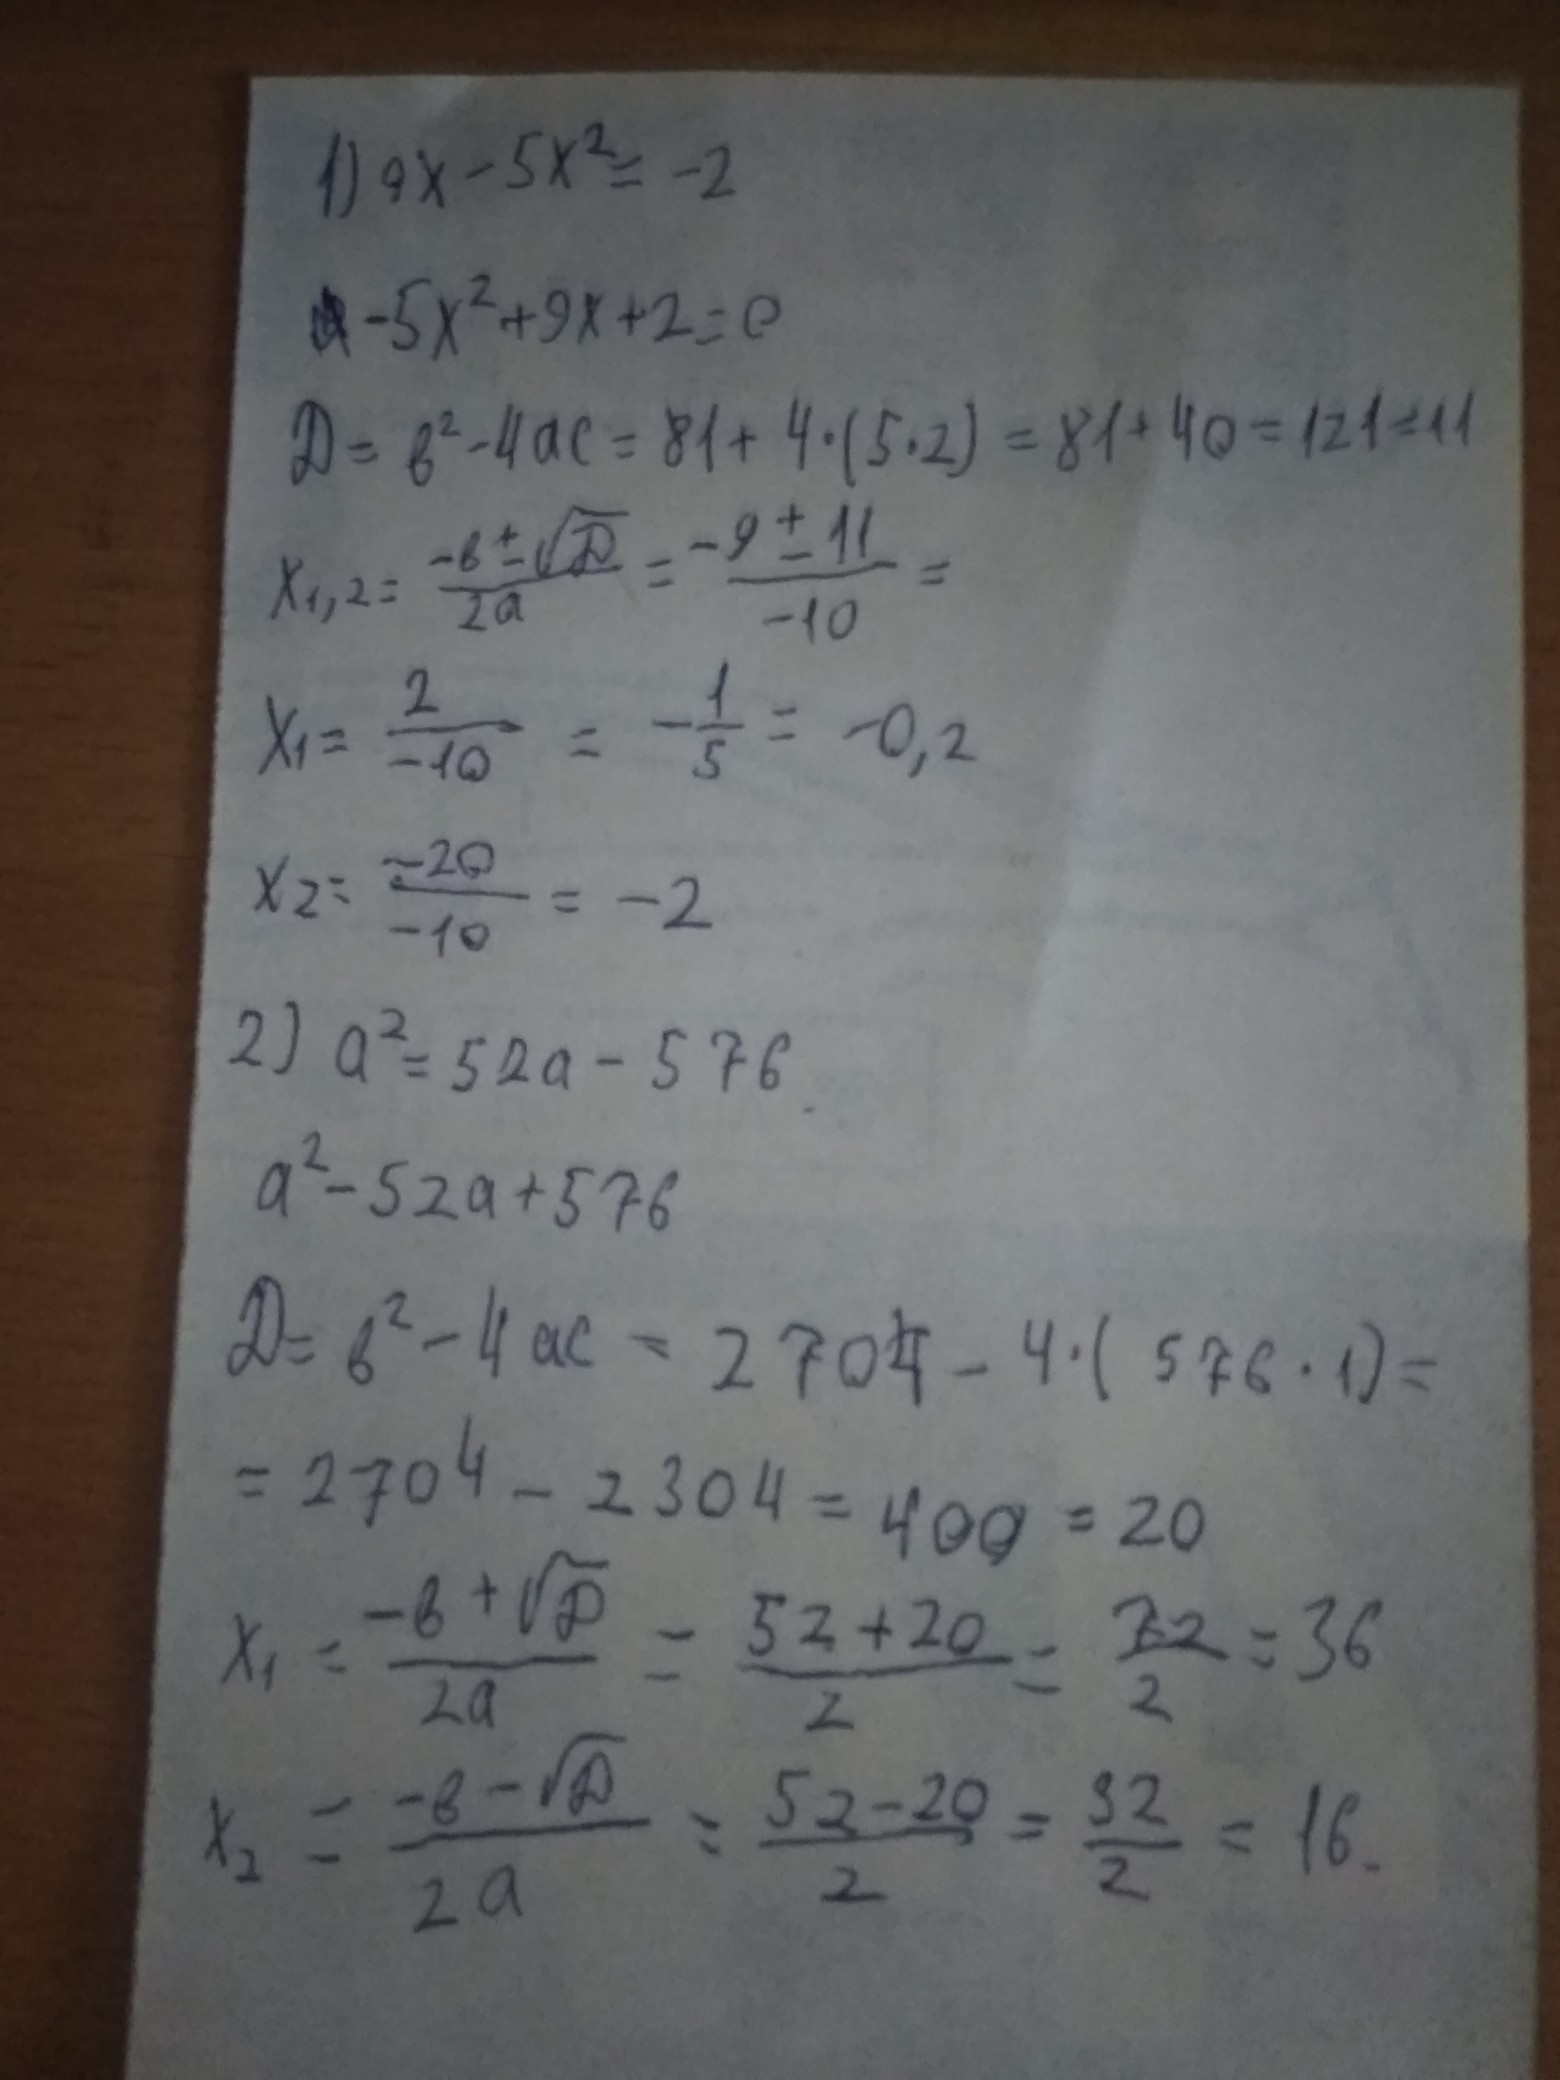 1) 9x - 5x² = -2
-5x² + 9x + 2 = 0
D = b² - 4ac = 81 + 4·(5·2) = 81 + 40 = 121 = 11
x₁,₂ = (-b ± √D)/(2a) = (-9 ± 11)/(-10) =
x₁ = 2/(-10) = -1/5 = -0,2
x₂ = (-20)/(-10) = -2
2) a² = 52a - 576
a² - 52a + 576
D = b² - 4ac = 2704 - 4·(576·1) =
= 2704 - 2304 = 400 = 20
x₁ = (-b + √D)/(2a) = (52 + 20)/2 = 72/2 = 36
x₂ = (-b - √D)/(2a) = (52 - 20)/2 = 32/2 = 16.